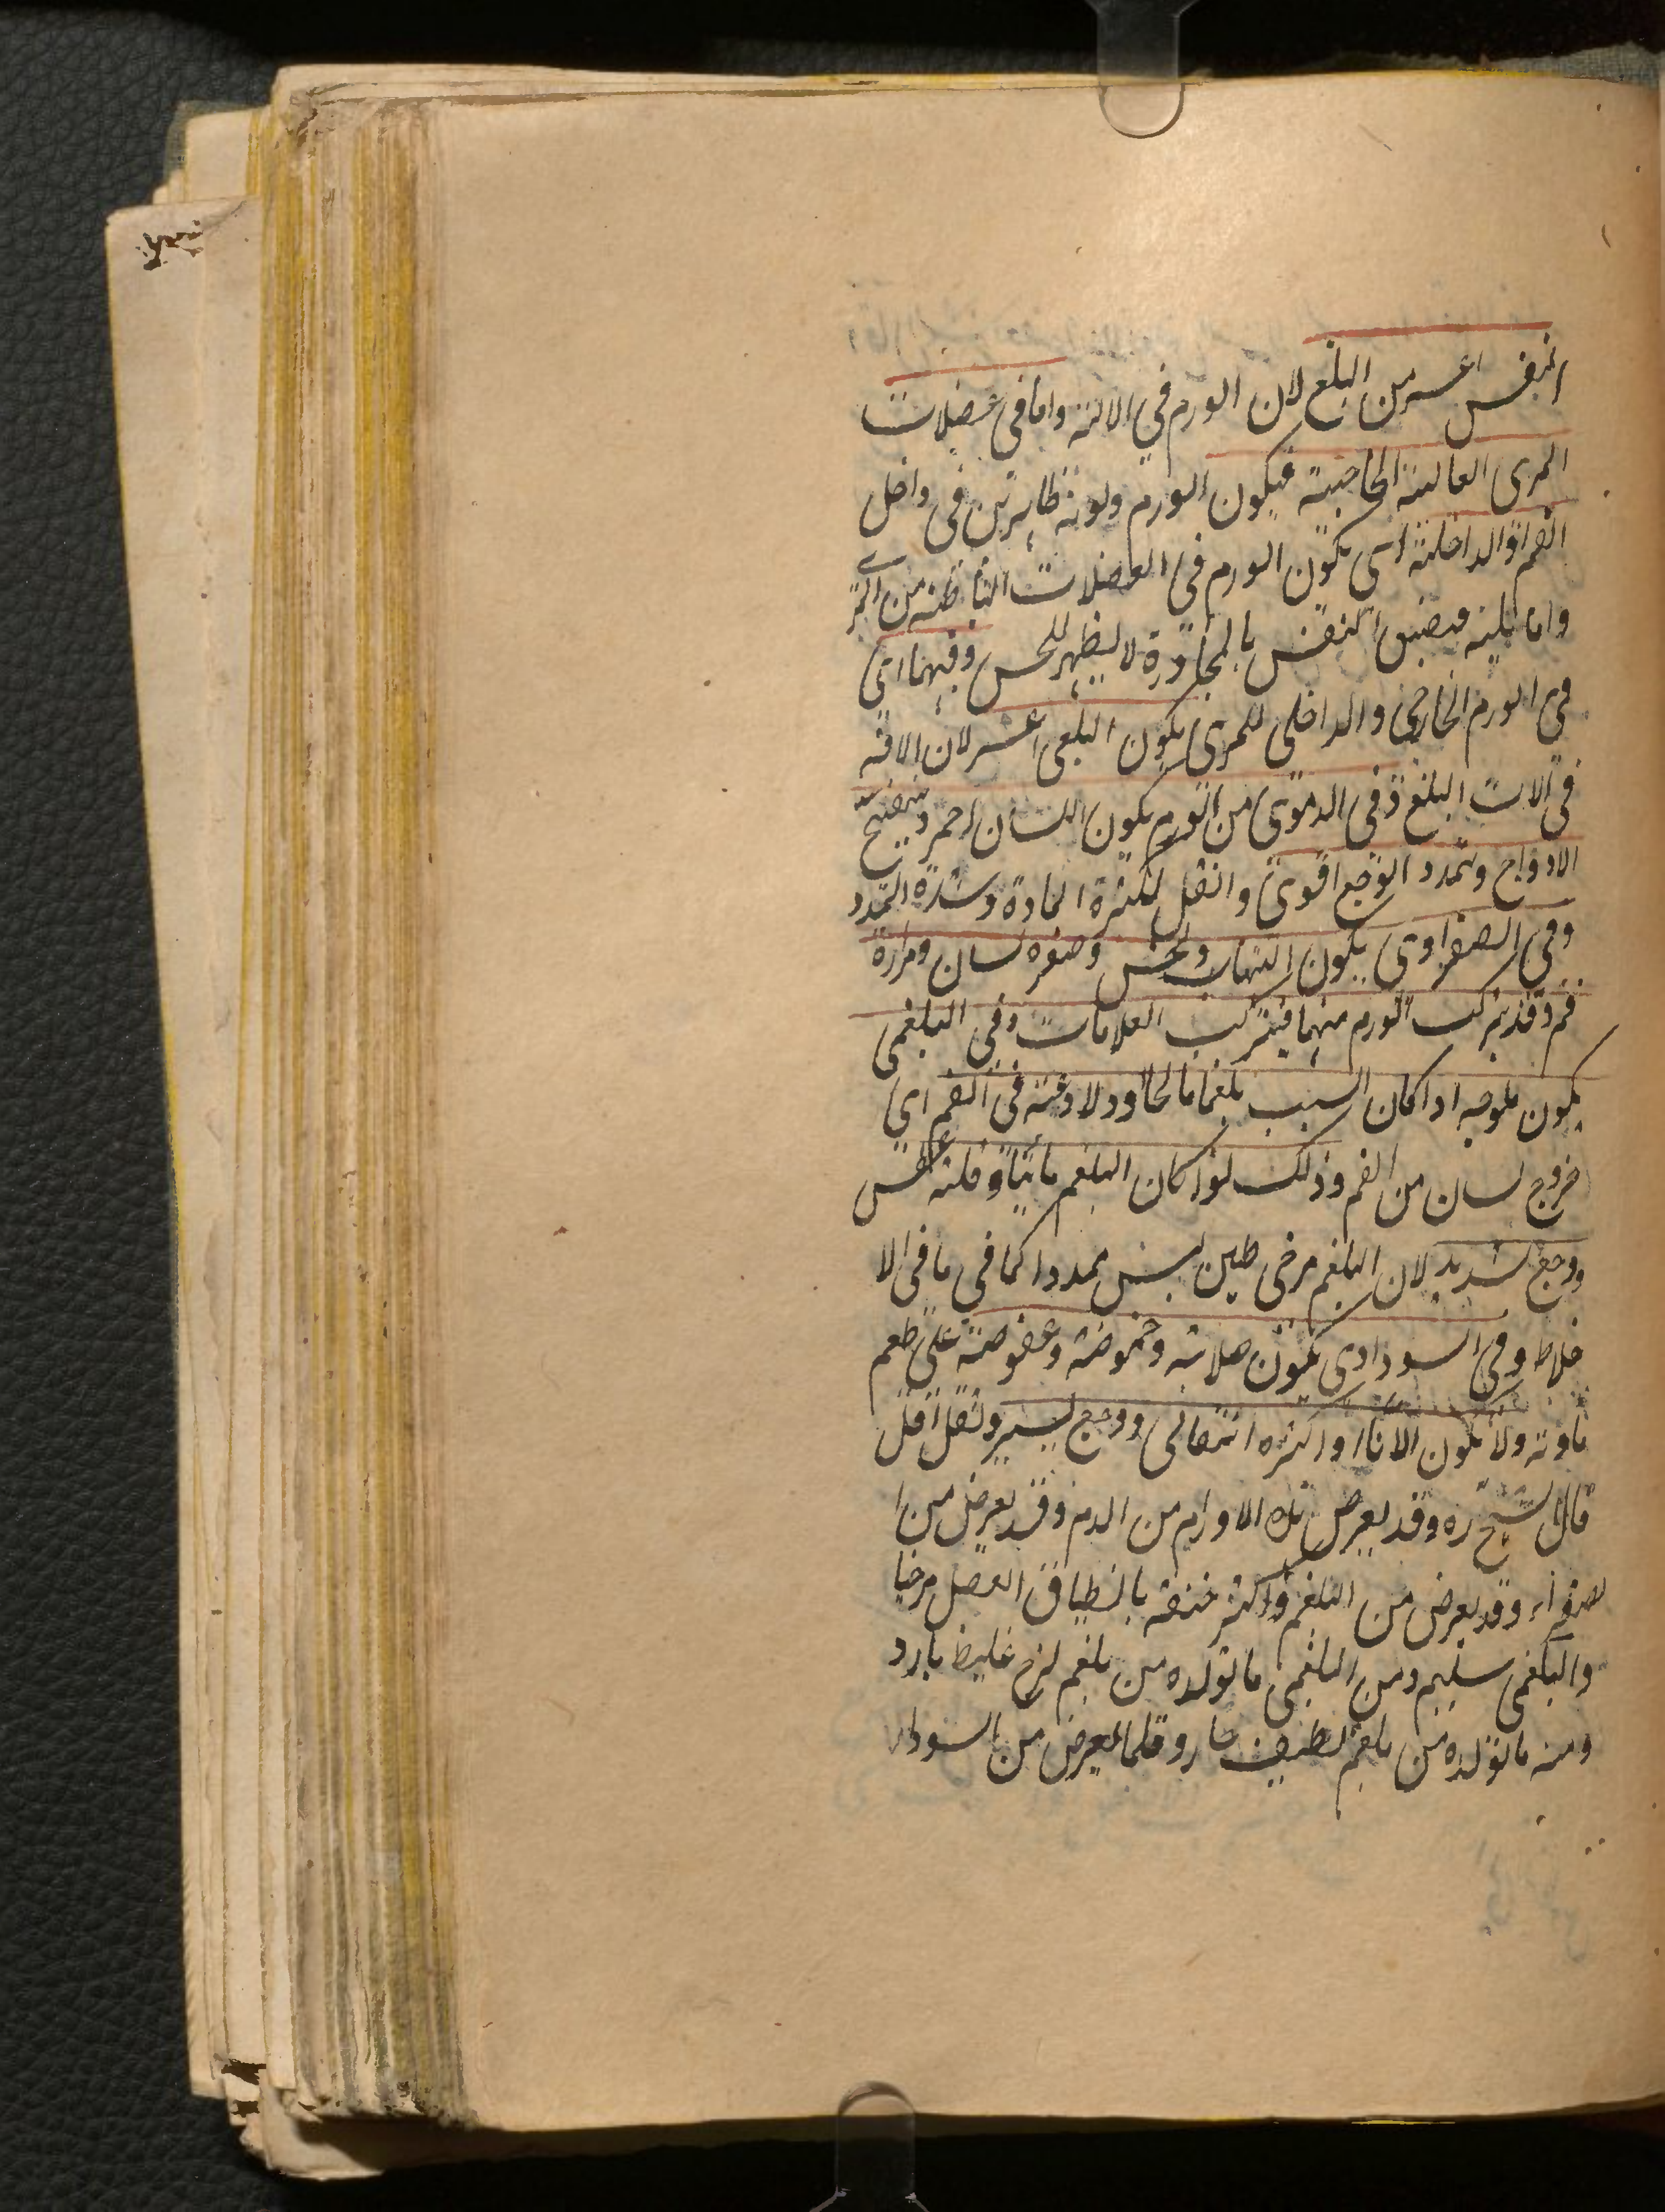 النفس اعسر من البلع لان الورم في الالته واما في عضلات
المرى العالية الخاجية فيكون الورم ولونه ظاهرتين في داخل
الفم او الداخلة اى يكون الورم في العضلات الباطنه من المرى
واما يليه فيضيق النفس بالمجاورة لا يظهر للحس وفيهما اى
في الورم الخارجى والداخلى للمرى يكون البلع اعسر لان الافة
في الات البلع وفى الدموى من الورم يكون اللسان احمر و ينتفخ
الاوداج وتمدد الوجع اقوى والثقل لكثرة المادة وشدة التمدد
وفى الصفراوى يكون التهاب ونخس وصفرة لسان ومرارة
فم وقد يتركب الورم منهما فيتركب العلامات وفى البلغمى
يكون ملوحه اذا كان السبب بلغما مالحا ودلاعته في الفم اى
خروج لسان من الفم وذلك لو كان البلغم مائيا وقلة عطش
ووجع شديد لان البلغم مرخى ملين ليس ممددا كما في ما في الا
خلاط وفى السوداوى يكون صلابة وحموضة وعفوصة على طعم
مادته ولا يكون الا نادرا واكثره انتقالى ووجع يسير وثقل اقل
قال الشيخ ره وقد يعرض تلك الاورام من الدم وقد يعرض من ا
لصفراء وقد يعرض من البلغم واكثر خنقه بانطباق العضل مرخيا
والبلغمى سليم ومن البلغمى ما تولده من بلغم لزج غليظ بارد
ومنه ما تولده من بلغم لطيف حار وقلما يعرض من السوداء